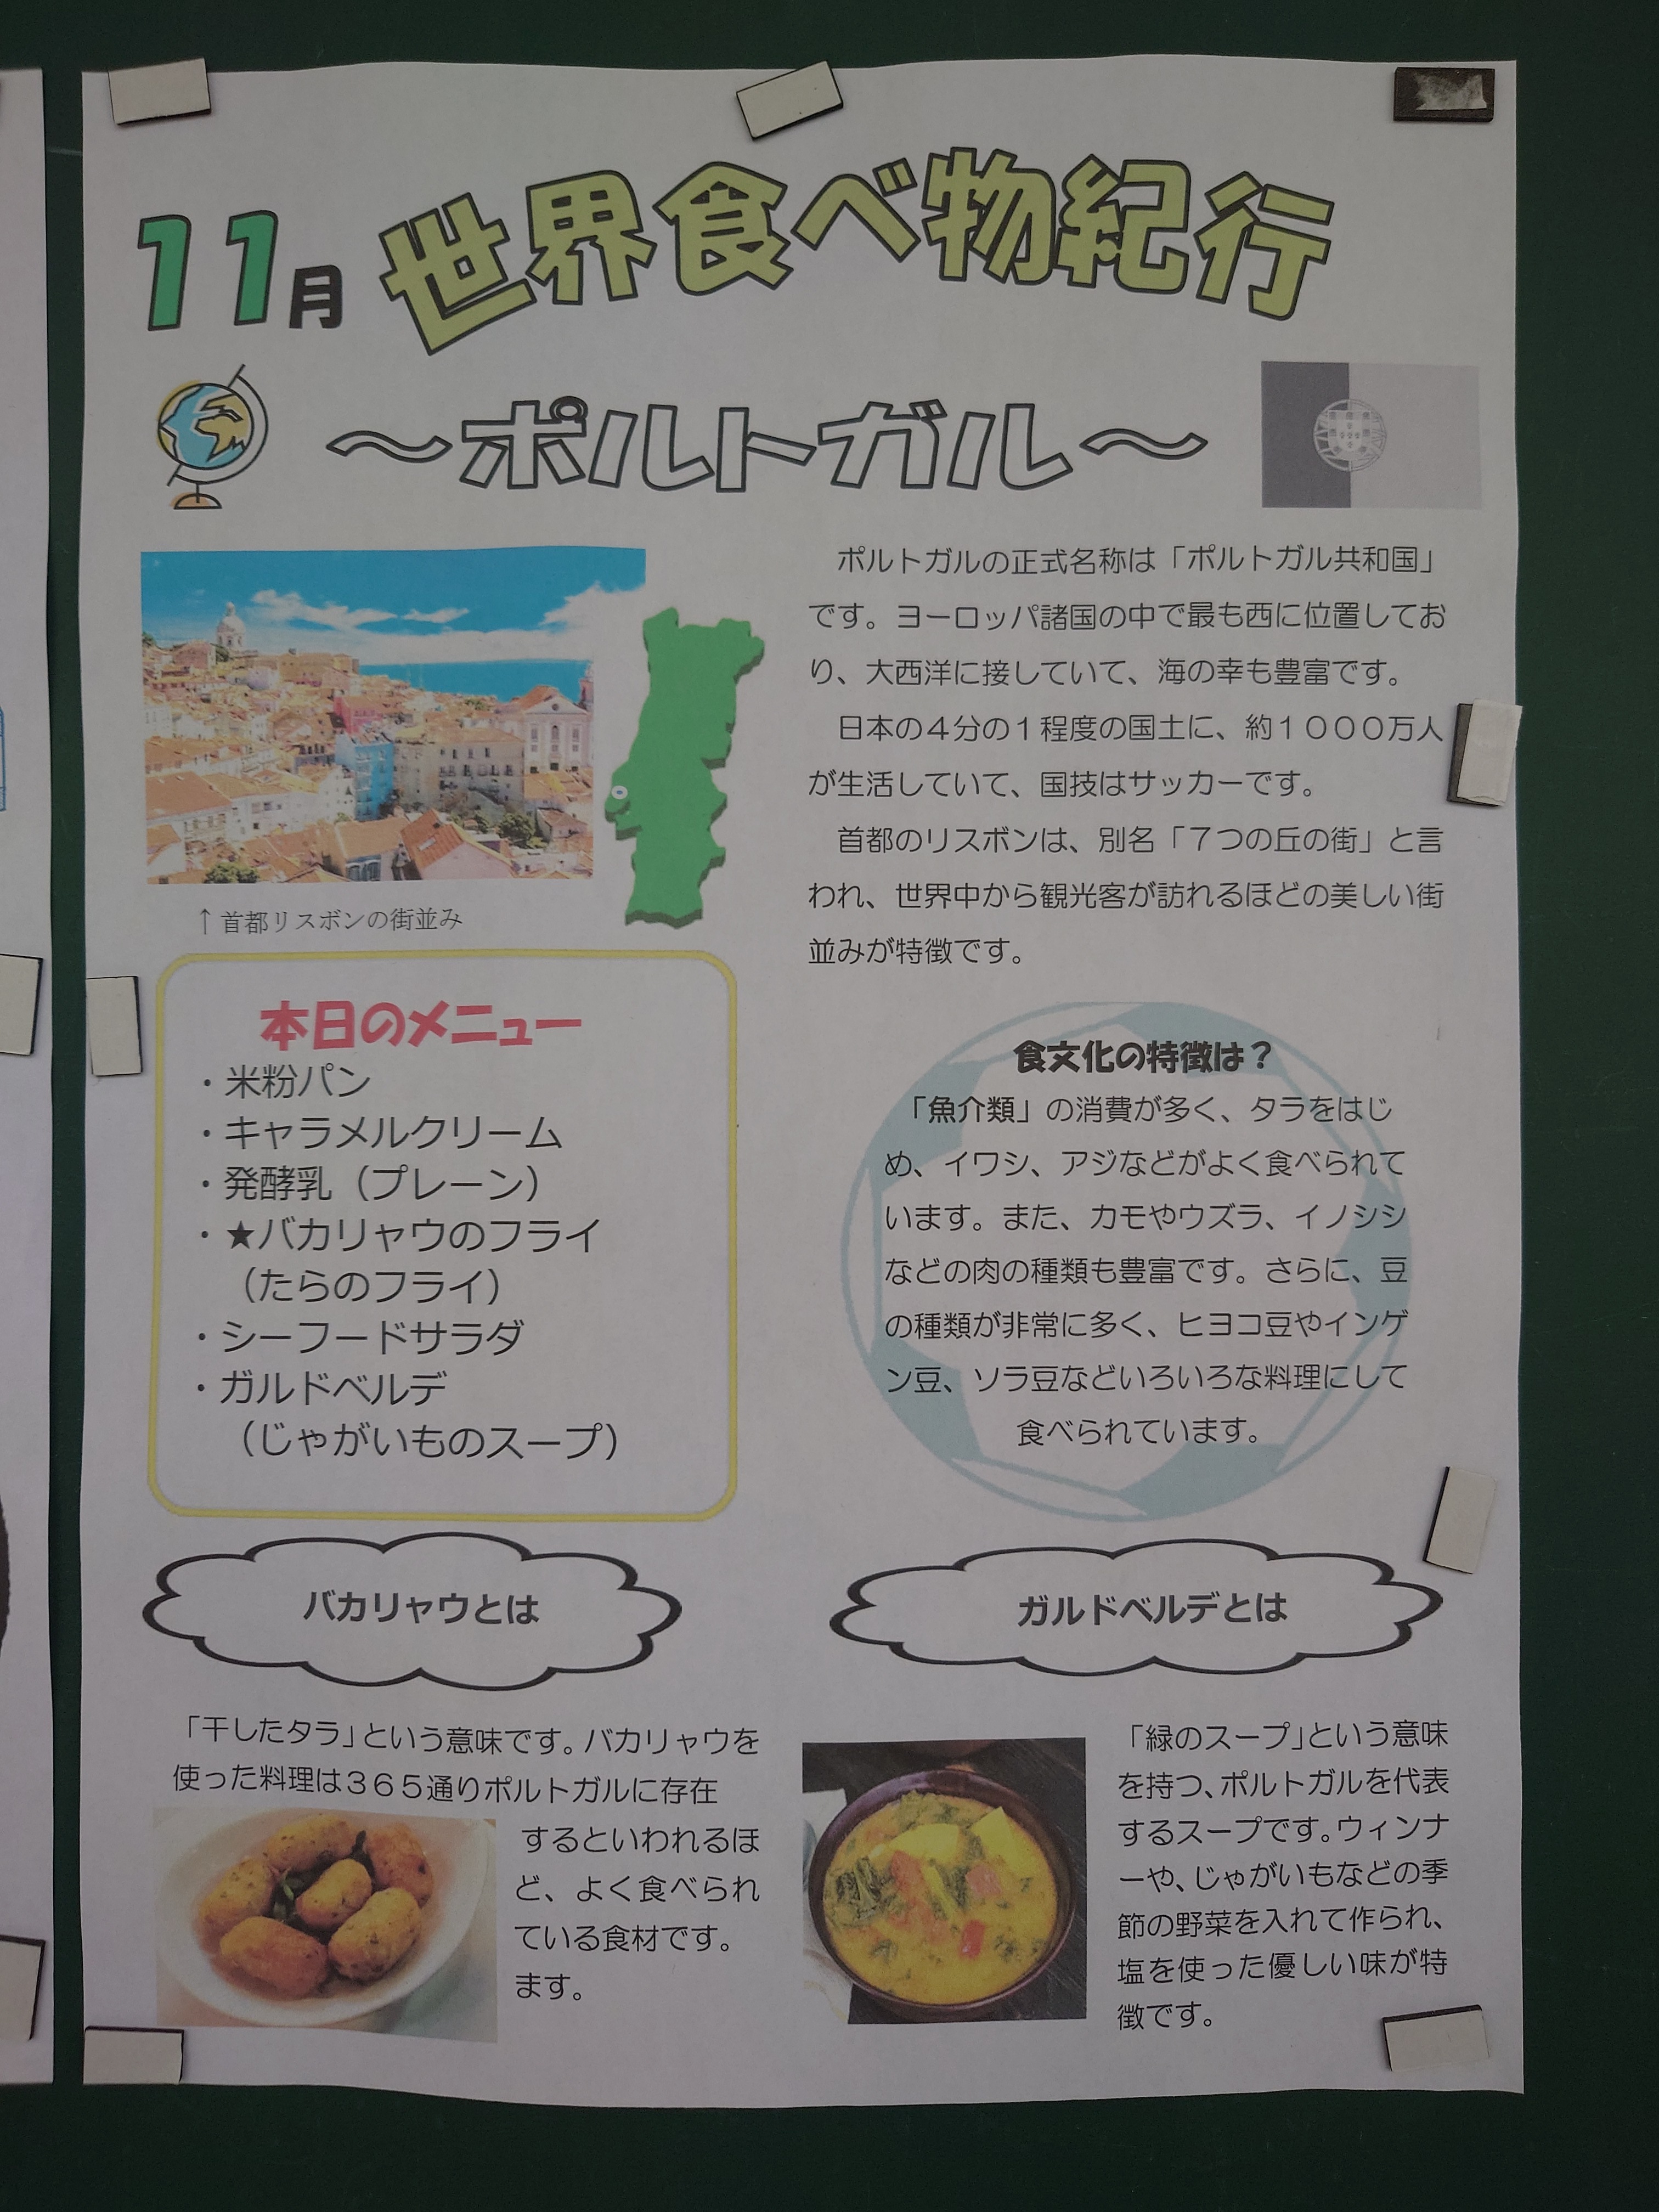 11月 世界食べ物紀行
～ポルトガル～
↑首都リスボンの街並み
　ポルトガルの正式名称は「ポルトガル共和国」
です。ヨーロッパ諸国の中で最も西に位置してお
り、大西洋に接していて、海の幸も豊富です。
　日本の４分の１程度の国土に、約１０００万人
が生活していて、国技はサッカーです。
　首都のリスボンは、別名「７つの丘の街」と言
われ、世界中から観光客が訪れるほどの美しい街
並みが特徴です。
本日のメニュー
・米粉パン
・キャラメルクリーム
・発酵乳（プレーン）
・★バカリャウのフライ
（たらのフライ）
・シーフードサラダ
・ガルドベルデ
（じゃがいものスープ）
食文化の特徴は？
「魚介類」の消費が多く、タラをはじ
め、イワシ、アジなどがよく食べられて
います。また、カモやウズラ、イノシシ
などの肉の種類も豊富です。さらに、豆
の種類が非常に多く、ヒヨコ豆やインゲ
ン豆、ソラ豆などいろいろな料理にして
食べられています。
バカリャウとは
「干したタラ」という意味です。バカリャウを
使った料理は３６５通りポルトガルに存在
するといわれるほ
ど、よく食べられ
ている食材です。
ます。
ガルドベルデとは
「緑のスープ」という意味
を持つ、ポルトガルを代表
するスープです。ウィンナ
ーや、じゃがいもなどの季
節の野菜を入れて作られ、
塩を使った優しい味が特
徴です。